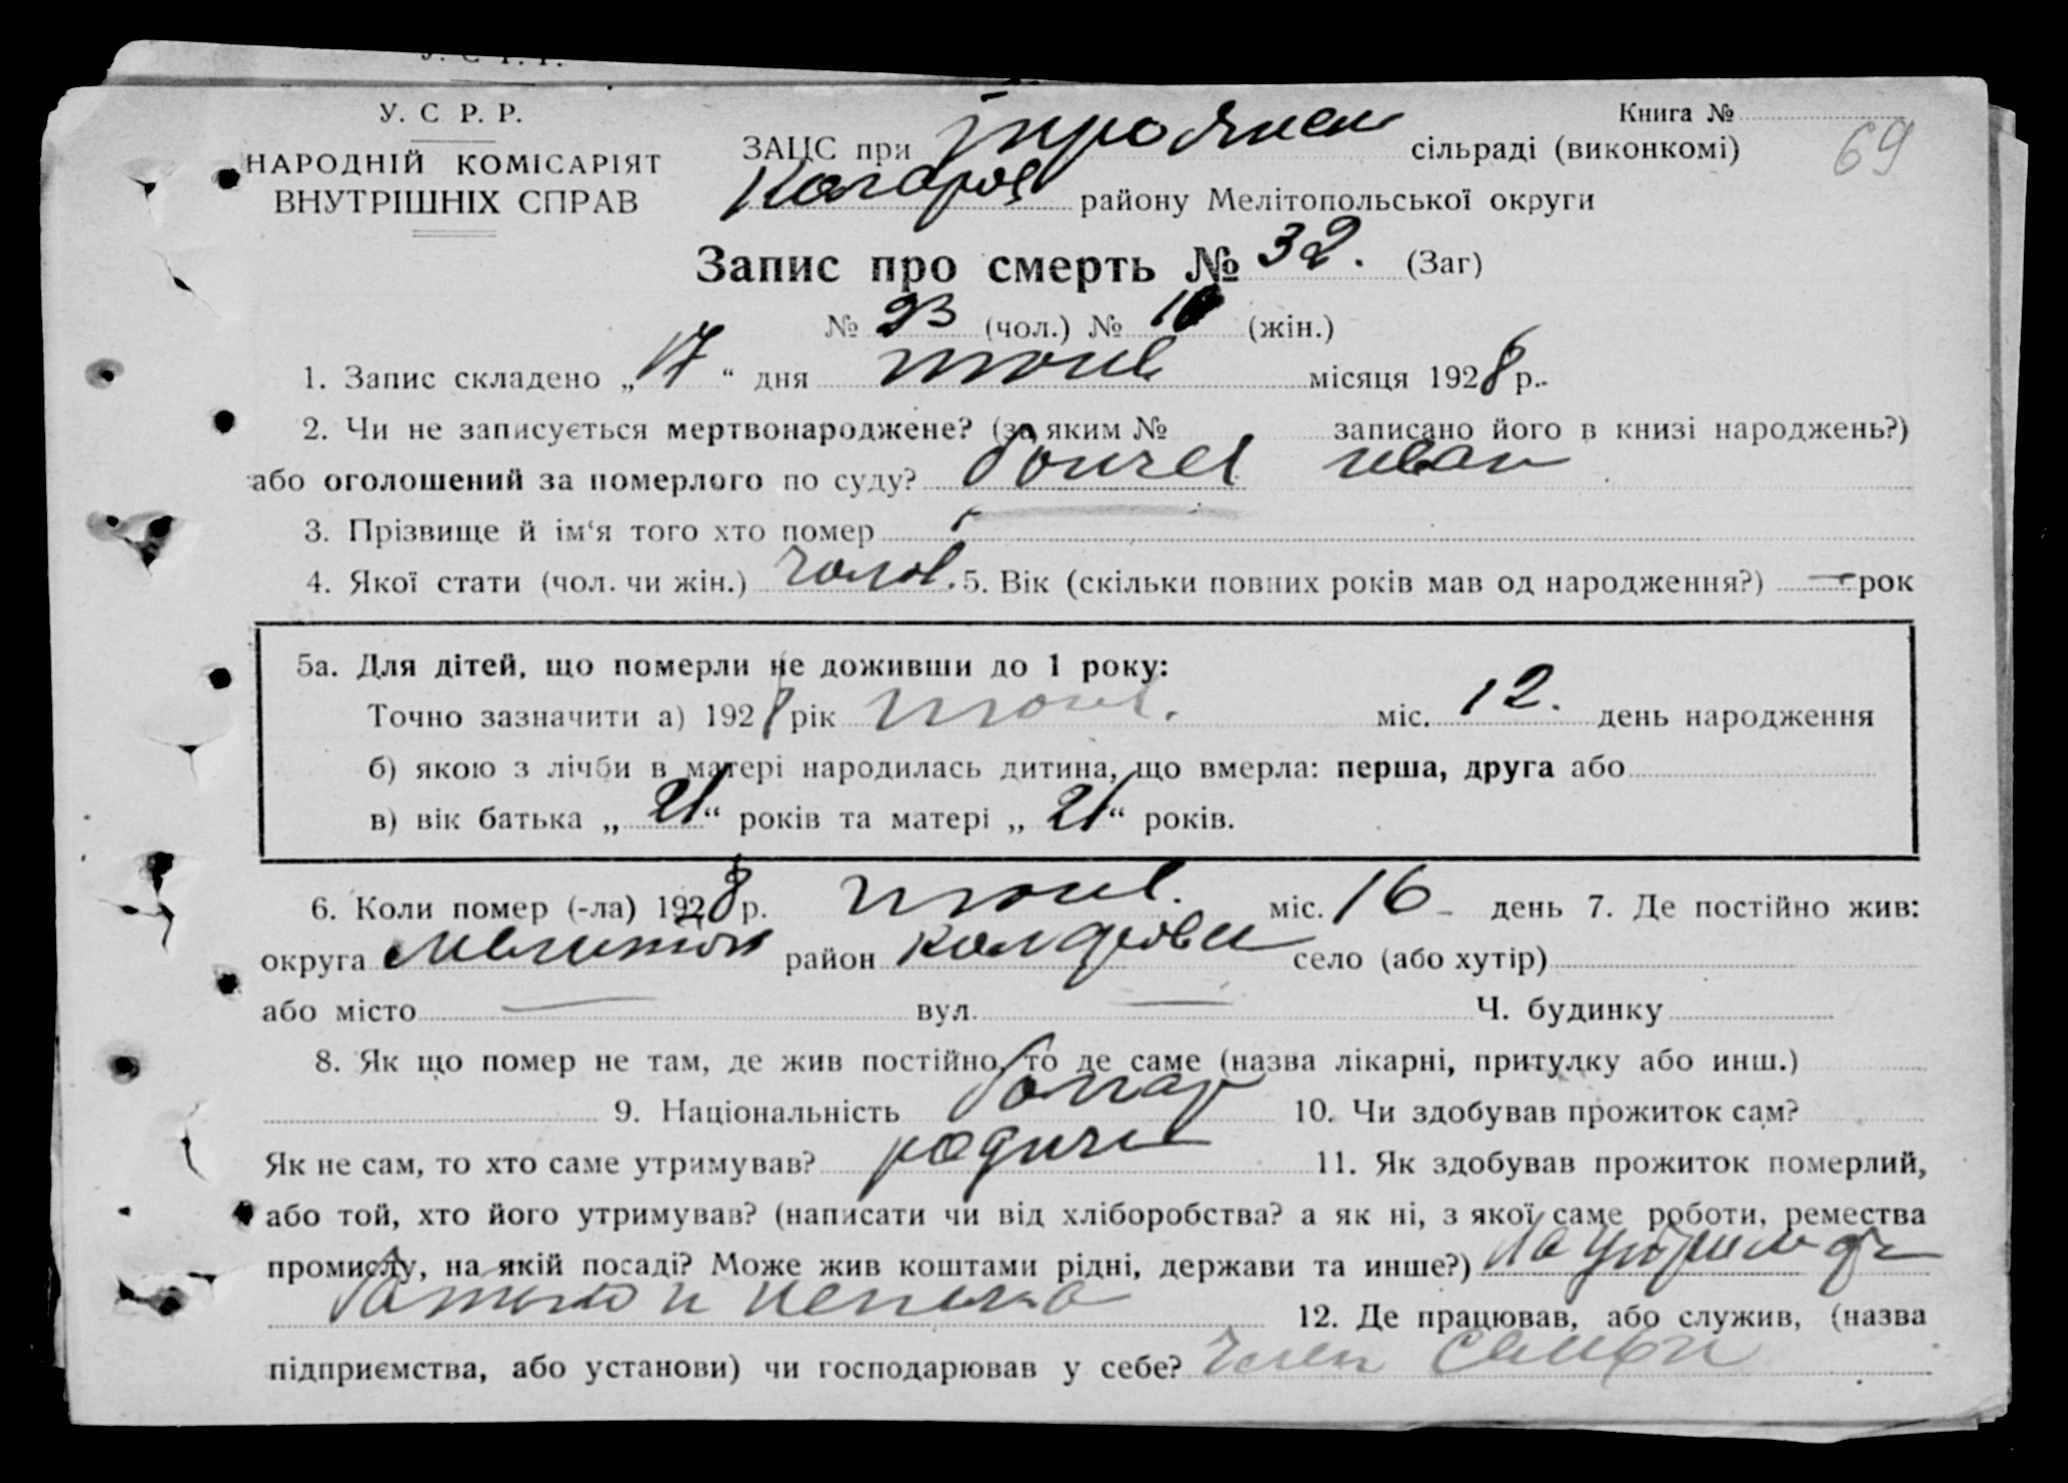 У. С. Р. Р.
У. С Р. Р.
Книга №
69
НАРОДНІЙ КОМІСАРІЯТ
ВНУТРІШНІХ СПРАВ
ЗАЦС при сільраді (виконкомі)
Коларов району Мелітопольської округи
Запис про смерть № 32. (Заг)
№ 23 (чол.) № 10 (жін.)
1. Запис складено „17“ дня июль місяця 1928 р.
2. Чи не записується мертвонароджене? (за яким № записано його в книзі народжень?)
або оголошений за померлого по суду? Иван
3. Прізвище й ім‘я того хто помер
4. Якої стати (чол. чи жін.) чолов. 5. Вік (скільки повних років мав од народження?) — рок
5а. Для дітей, що померли не доживши до 1 року:
Точно зазначити а) 1928 рік июль. міс. 12. день народження
б) якою з лічби в матері народилась дитина, що вмерла: перша, друга або
в) вік батька „21“ років та матері „21“ років.
6. Коли помер (-ла) 1928 р. июль. міс. 16 день 7. Де постійно жив:
округа Мелитоп район село (або хутір)
або місто — вул. — Ч. будинку
8. Як що помер не там, де жив постійно, то де саме (назва лікарні, притулку або инш.)
9. Національність болгар 10. Чи здобував прожиток сам?
Як не сам, то хто саме утримував? родичі 11. Як здобував прожиток померлий,
або той, хто його утримував? (написати чи від хліборобства? а як ні, з якої саме роботи, ремества
промислу, на якій посаді? Може жив коштами рідні, держави та инше?)
12. Де працював, або служив, (назва
підприємства, або установи) чи господарював у себе? Член семьи